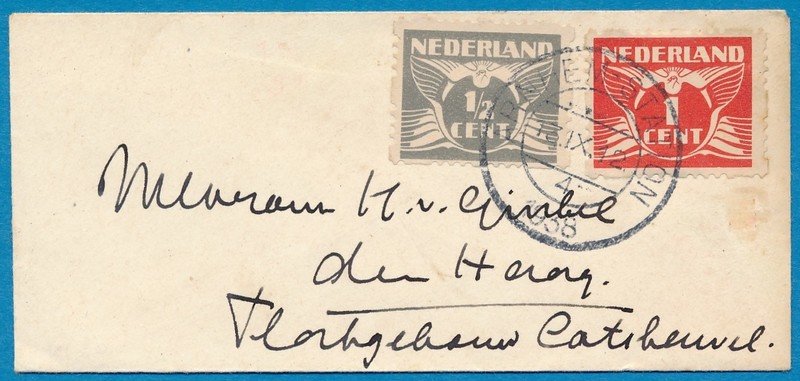 NEDERLAND
1/2
CENT
NEDERLAND
1
CENT
STATION
IX.12
1938
Mevrouw H. v. Ginkel
den Haag.
Catsheuvel.